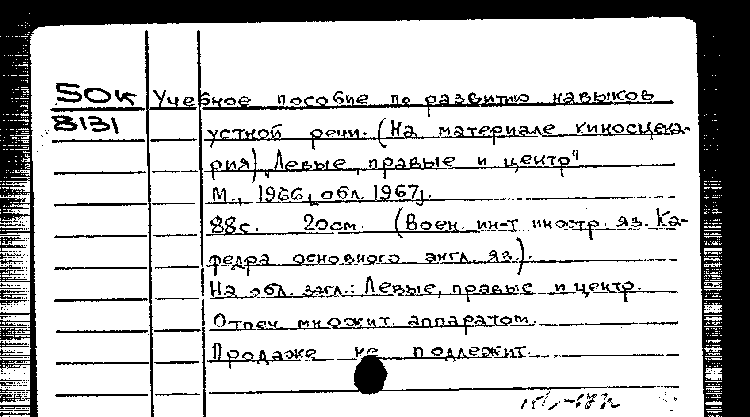 50к Учебное пособие по развитию навыков
8131 устной речи. (На материале киносцена-
рия) „Левые, правые и центр"
М., 1966, обл. 1967.
88с. 20см. (Воен. ин-т иностр. яз. Ка-
федра основного англ. яз.).
На обл. загл.: Левые, правые и центр.
Отпеч. множит. аппаратом.
Продаже не подлежит.